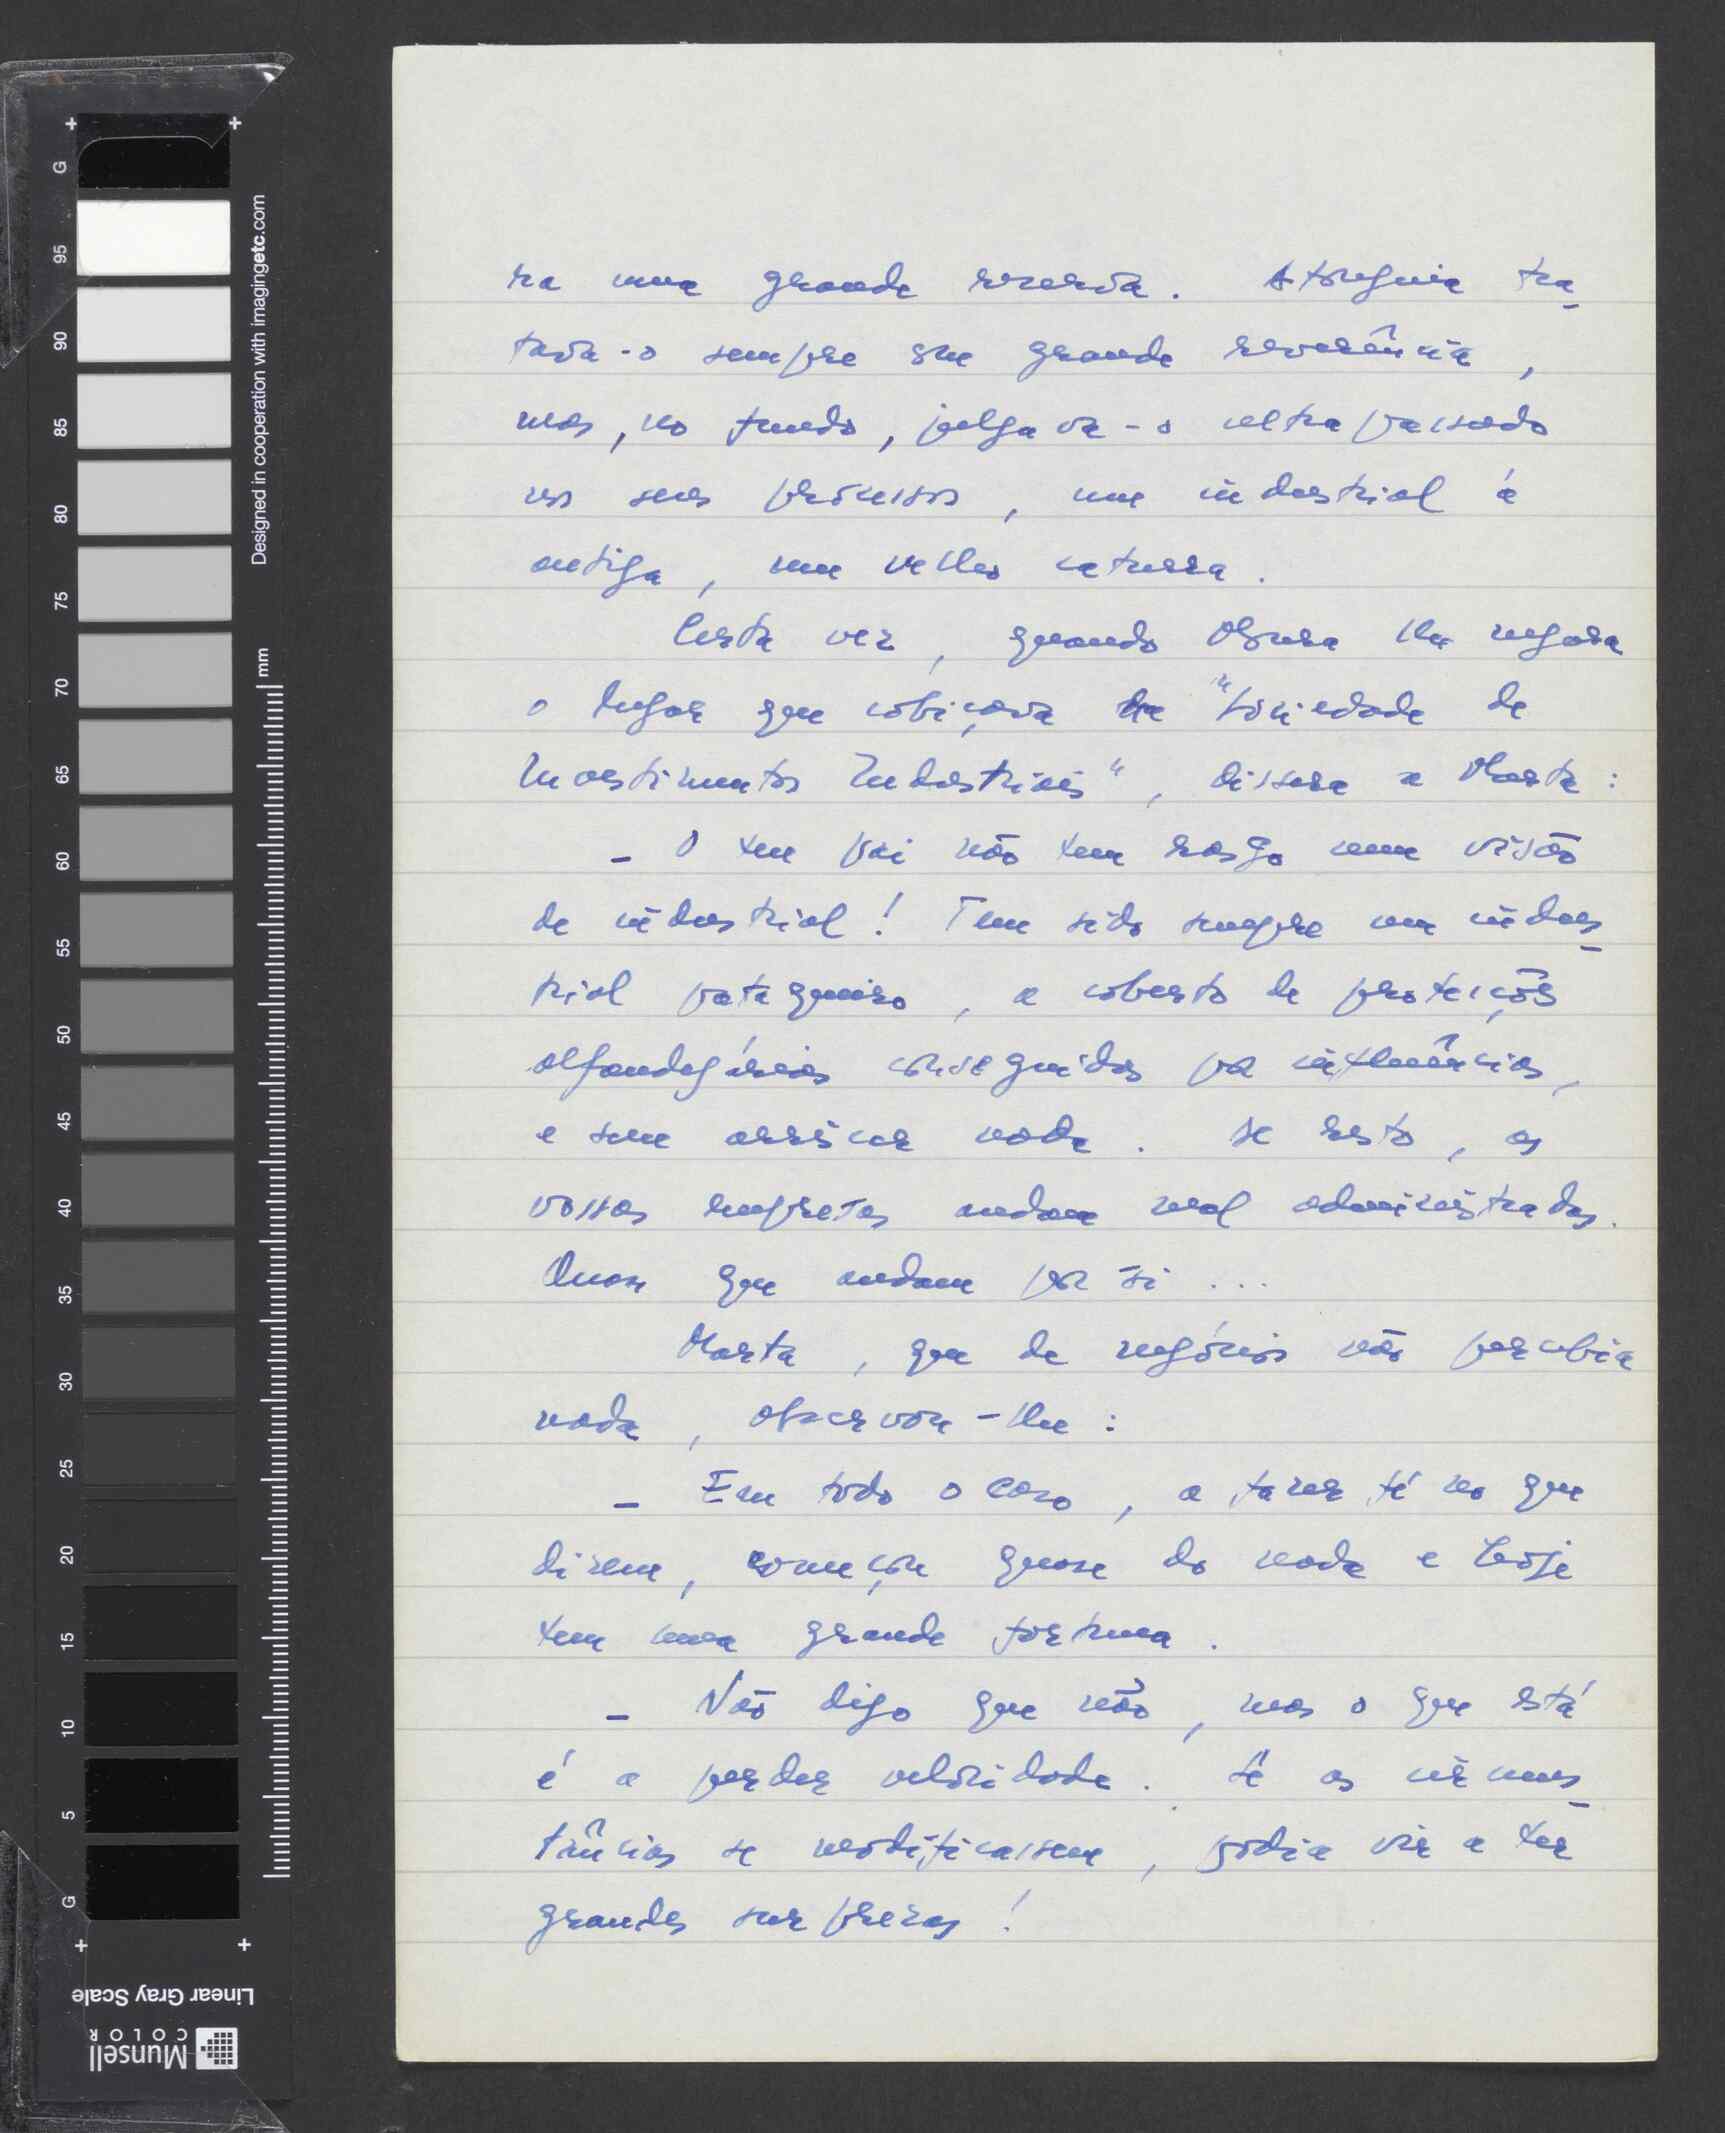 ra uma grande reserva. Atouguia tra-
tava-o sempre com grande reverência,
mas, no fundo, julgava-o ultrapassado
nos seus processos, um industrial à
antiga, um velho caturra.
Certa vez, quando Moura lhe negara
o lugar que cobiçava na "Sociedade de
Investimentos Industriais", dissera a Marta:
- O teu pai não tem rasgo nem visão
de industrial! Tem sido sempre um indus-
trial pataqueiro, a coberto de protecções
alfandegárias conseguidas por influências,
e sem arriscar nada. De resto, as
vossas empresas andam mal administradas.
Quase que andam por si ...
Marta, que de negócios não percebia
nada, observou-lhe:
- Em todo o caso, a fazer fé no que
dizem, começou quase do nada e hoje
tem uma grande fortuna.
- Não digo que não, mas o que está
é a perder velocidade. Se as circuns-
tâncias se modificassem, podia vir a ter
grandes surprezas!
G 95 90 85 80 75 70 65 60 55 50 45 40 35 30 25 20 15 10 5 G
Designed in cooperation with imagingetc.com
mm
Linear Gray Scale
Munsell
COLOR